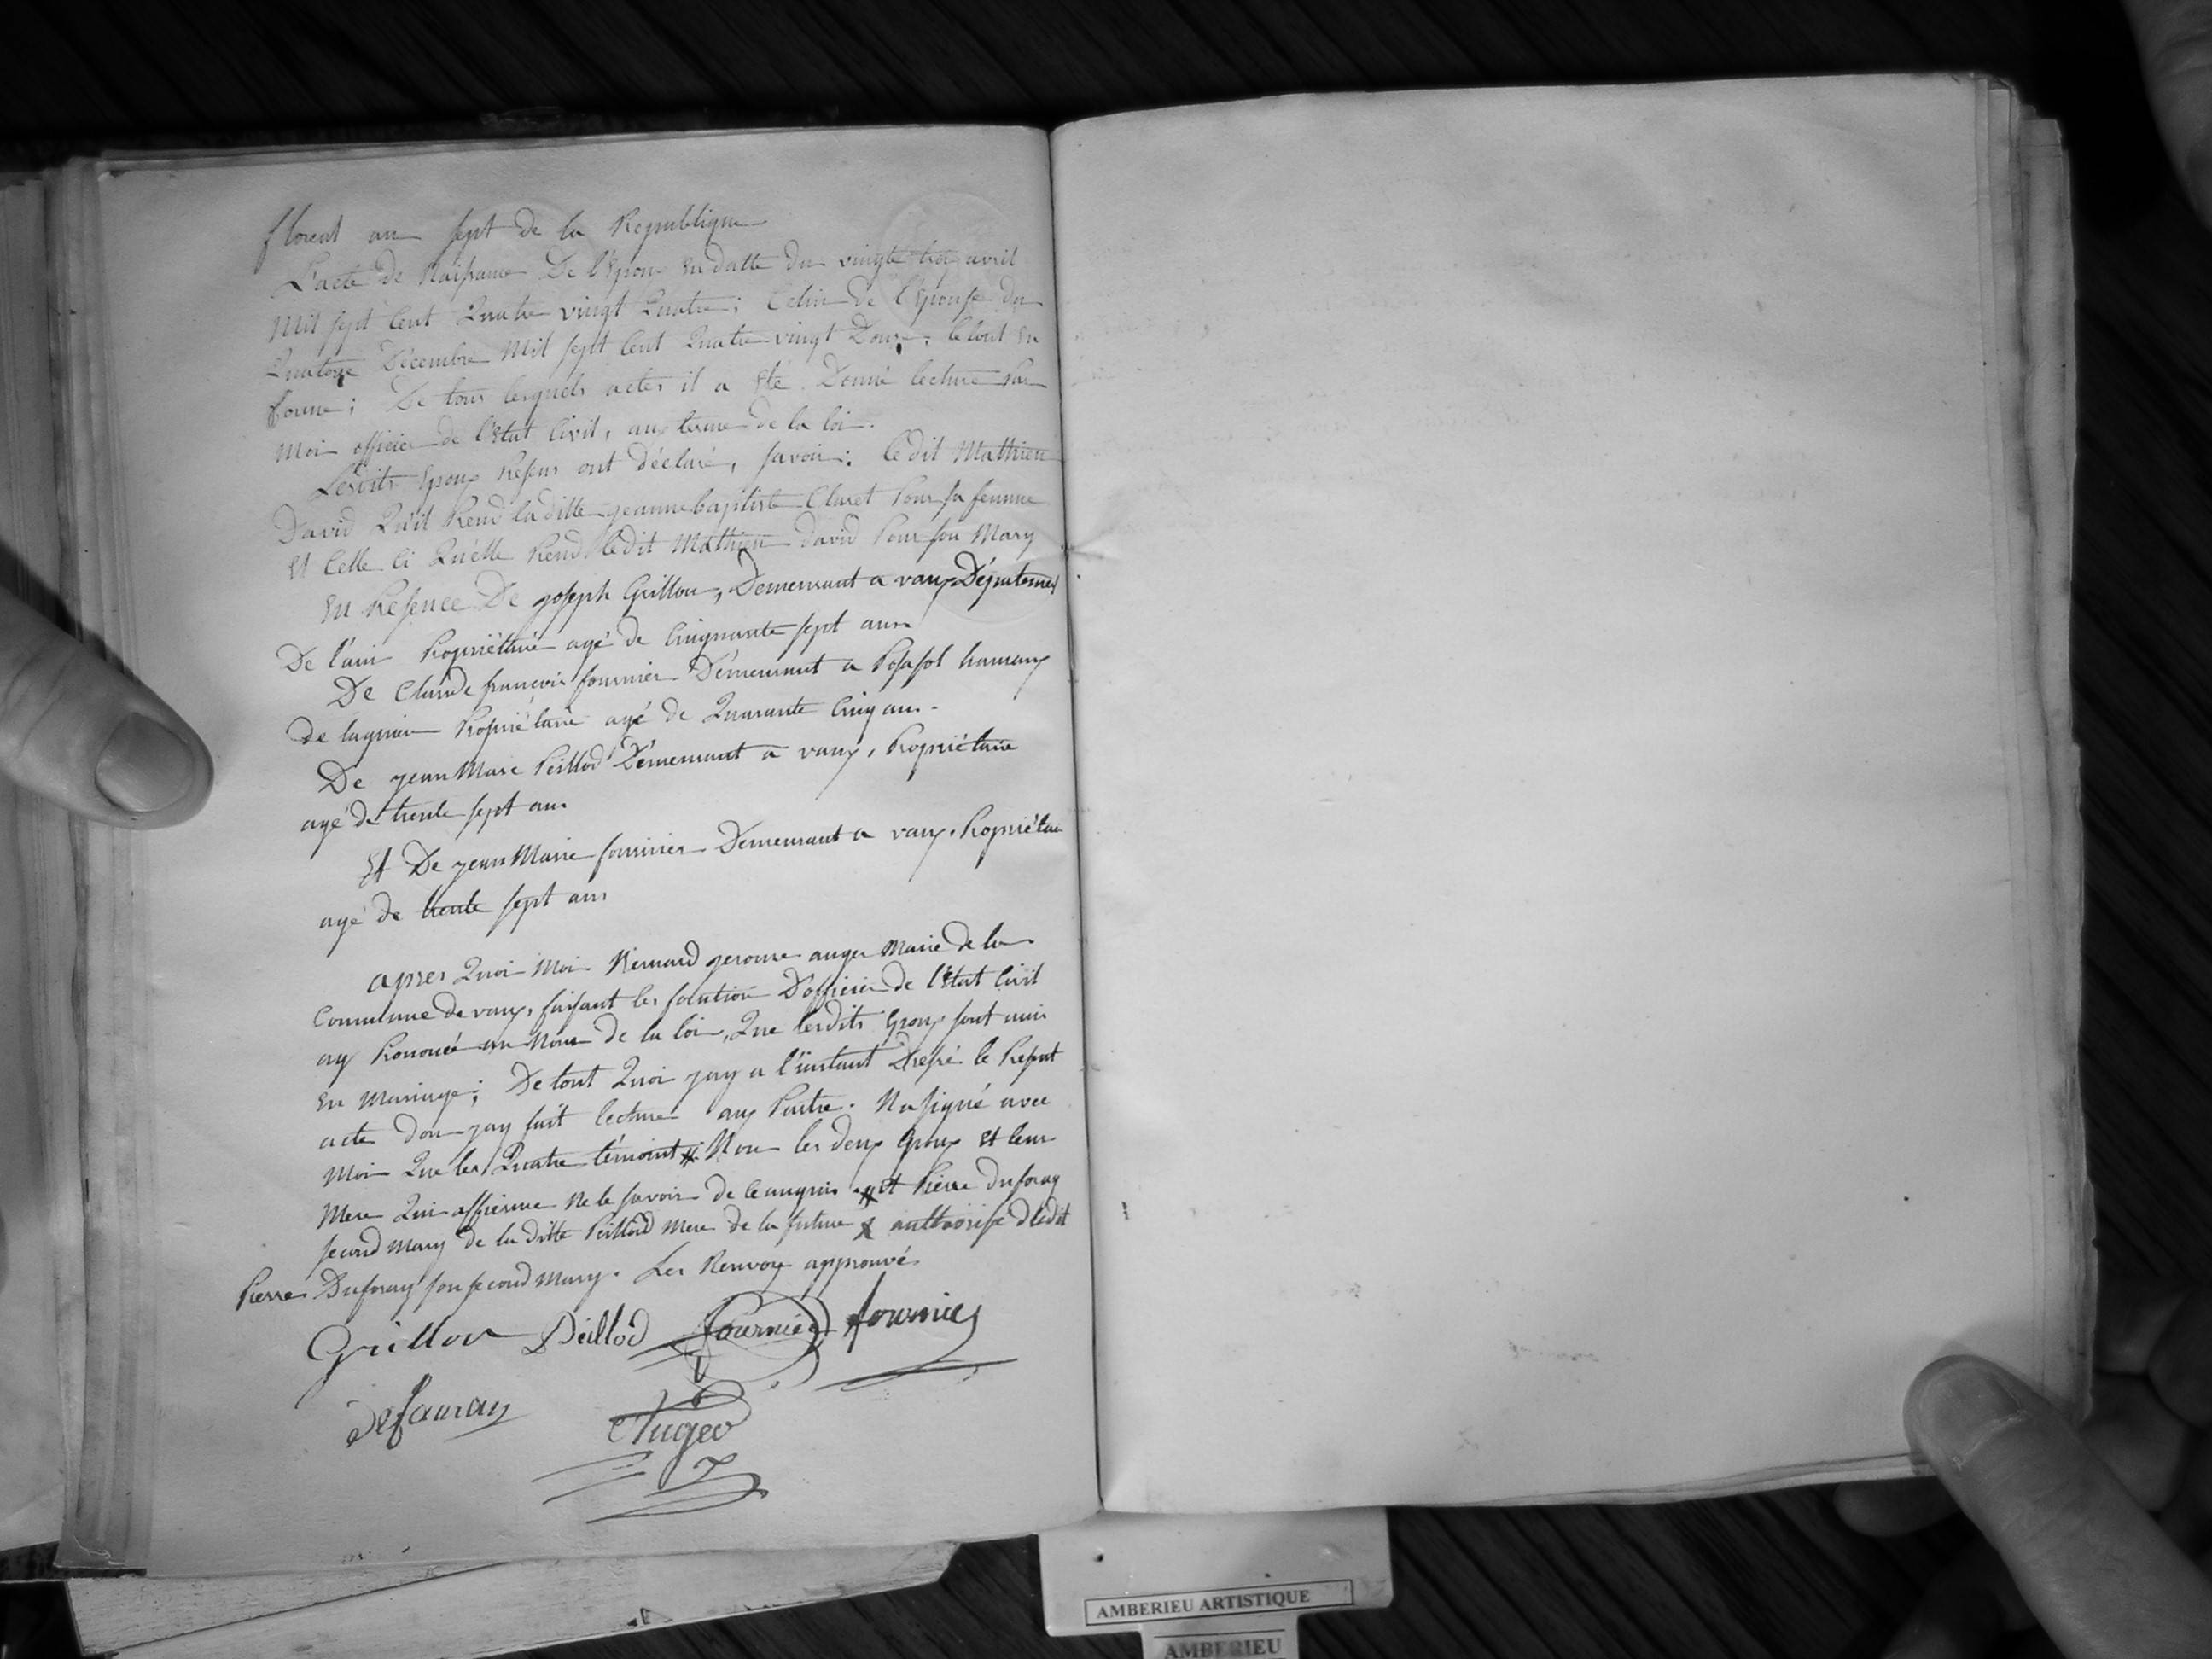 floreal an sept de la Republique
L'acte de Naissance De l'Epoux En datte du vingte trois avril
Mil sept Cent Quatre vingt Quatre; Celui de l'Epouse du
Quatorze Décembre Mil sept Cent Quatre vingt Douze; le tout En
forme; De tous lesquels actes il a Eté Donné lecture Par
Moi officier de l'Etat Civil, aux terme de la loi.
Lesdits Epoux Presens ont déclaré, savoir: ledit Mathieu
David Qu'il Prend laditte jeanne baptiste Claret Pour sa femme
Et Celle Ci Qu'elle Prend ledit Mathieu david Pour son Mary
En Presence De joseph Grillon, Demeurant a vaux Département
De l'ain Propriétaire agé de Cinquante sept ans
De Claude françois fournier Demeurant a Posafol hameaux
de lagnieu Propriétaire agé de Quarante Cinq ans.
De jean Marc Peillod Démeurant a vaux, Propriétaire
agé de trente sept ans
Et De jean Marie fournier Demeurant a vaux, Propriétaire
agé de trente sept ans
apres Quoi Moi Bernard jerome auger Maire de la
Commune de vaux, faisant les fonction D'officier de l'Etat Civil
ay Prononcé au Nom de la loi, Que lesdits Epoux sont unis
En Mariage; De tout Quoi jay a l'instant Dressé le Present
acte don jay fait lecture aux Partie. Na signé avec
Moi Que les Quatre témoint # Non les deux Epoux Et leur
Mere Qui affierme Ne le savoir de Ce enquis # et Pierre Dufouray
second Mary de la ditte Peillod Mere de la future X authorisé dledit
Pierre Dufouray son second Mary. Les Renvoy approuvé
Grillon Peillod fournier fournier
Defauray Auger
AMBERIEU ARTISTIQUE
AMBERIEU